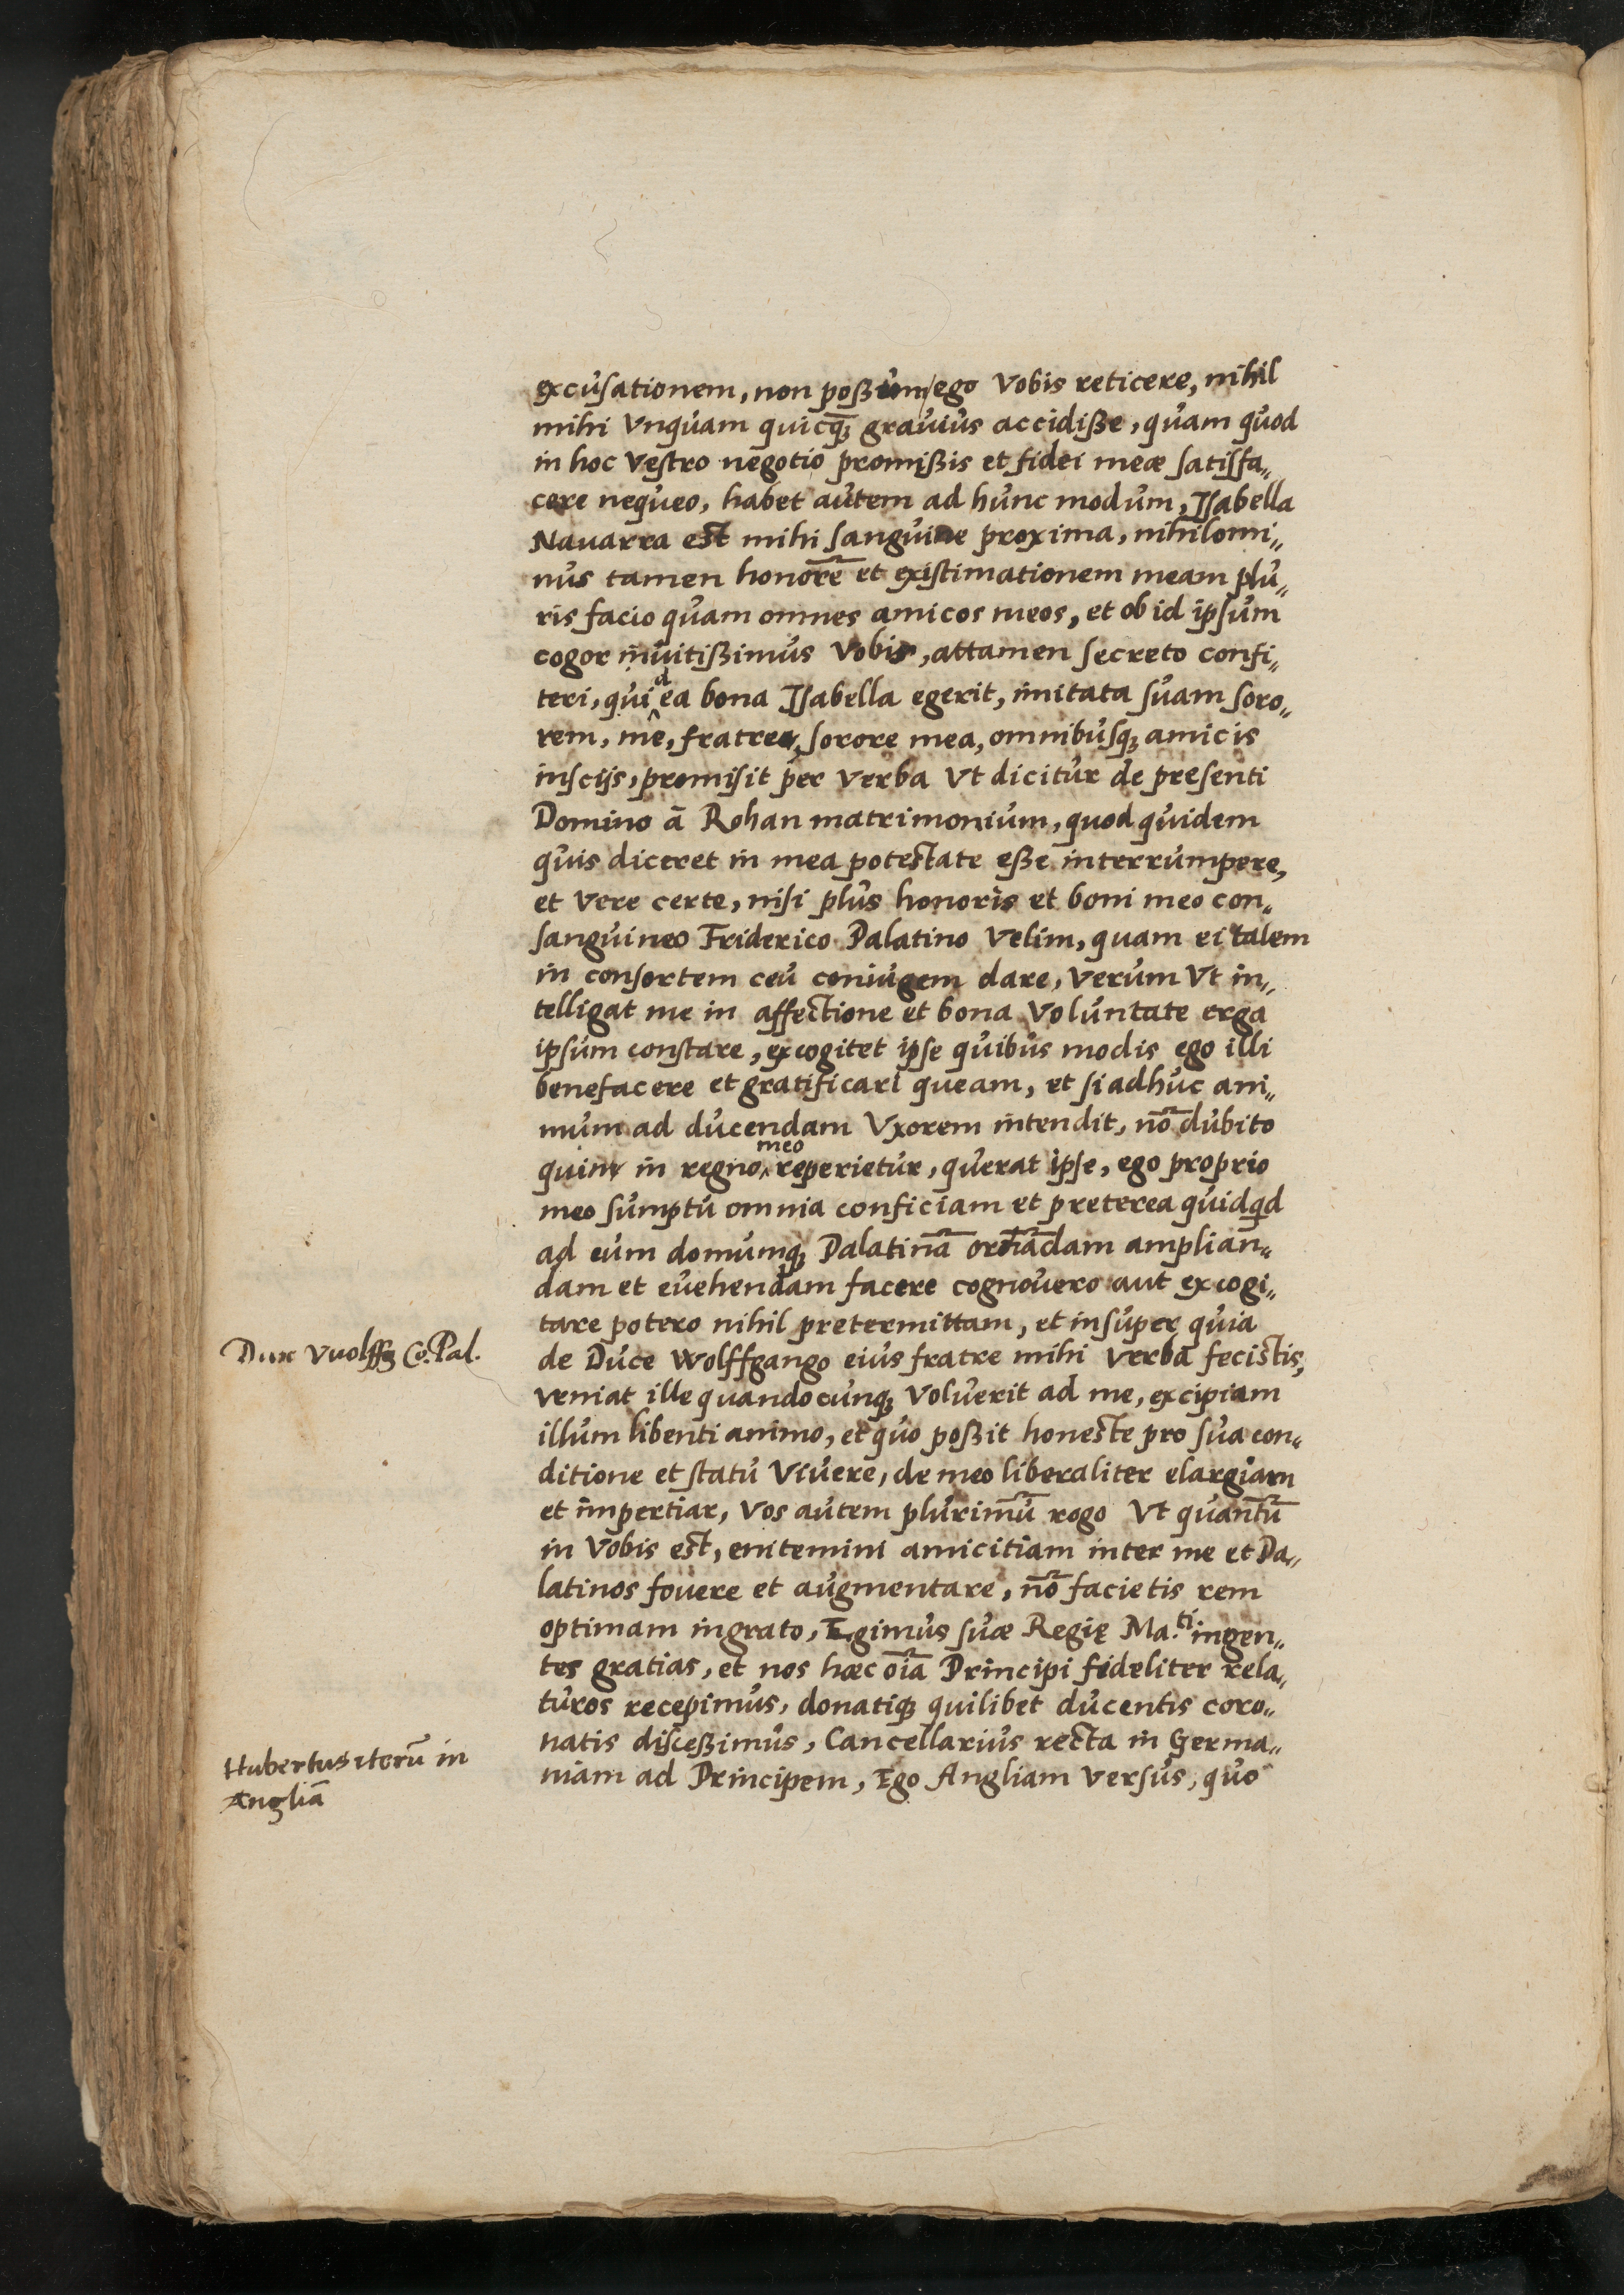 excusationem, non poßum ego Vobis reticere, nihil
mihi Vnquam quicq̄ꝫ grauius accidiße, quam quod
in hoc Vestro negotio promißis et fidei meæ satisfa„
cere nequeo, habet autem ad hunc modum, Isabella
Nauarra est mihi sanguine proxima, nihilomi„
nus tamen honorē et existimationem meam plu„
ris facio quam omnes amicos meos, et ob id ipsum
cogor inuitißimus Vobis, attamen secreto confi„
teri, quid ea bona Isabella egerit, imitata suam soro„
rem, me, fratre, sorore mea, omnibusqꝫ amicis
inscijs, promisit per Verba Vt dicitur de presenti
Domino ā Rohan matrimonium, quod quidem
quis diceret in mea potestate eße interrumpere,
et Vere certe, nisi plus honoris et boni meo con„
sanguineo Friderico Palatino Velim, quam ei talem
in consortem ceu coniugem dare, Verum Vt in„
telligat me in affectione et bona Voluntate erga
ipsum constare, excogitet ipse quibus modis ego illi
benefacere et gratificari queam, et si adhuc ani„
mum ad ducendam Vxorem intendit, nō dubito
quin in regno meo reperietur, querat ipse, ego proprio
meo sumptu omnia conficiam et preterea quidqd
ad eum domumqꝫ Palatinā ornādam amplian„
dam et euehendam facere cognouero aut excogi„
tare potero nihil pretermittam, et insuper quia
Dux Vuolffg Co. Pal.
de Duce Wolffgango eius fratre mihi Verba fecistis,
veniat ille quandocunqꝫ Voluerit ad me, excipiam
illum libenti animo, et quo poßit honeste pro sua con„
ditione et statu Viuere, de meo liberaliter elargiam
et impertiar, Vos autem plurimū rogo Vt quantū
in Vobis est, enitemini amicitiam inter me et Pa„
latinos fouere et augmentare, nō facietis rem
optimam ingrato, Egimus suæ Regię Ma.ti ingen„
tes gratias, et nos hæc oīa Principi fideliter rela„
turos recepimus, donatiqꝫ quilibet ducentis coro„
natis disceßimus, Cancellarius recta in Germa„
Hubertus iterū in
Angliā
niam ad Principem, Ego Angliam Versus, quo